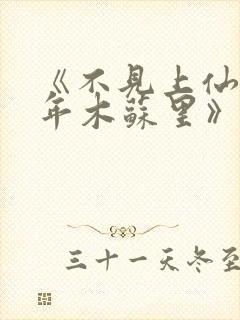 《不見上仙
年木蘇里》
三十一天冬至